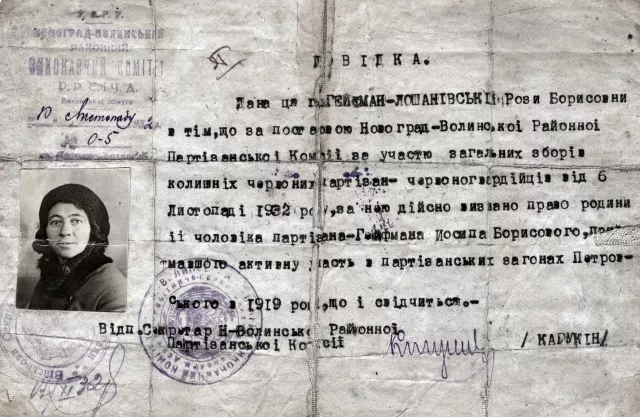 У.С.Р.Р.
НОВОГРАД-ВОЛИНСЬКИЙ
РАЙОННИЙ
ВИКОНАВЧИЙ КОМІТЕТ
Р.Р.С.Ч.Д.
Листопаду
№ 0-5
ДОВІДКА.
Дана ця гр. ГЕЙФМАН-ЛОШАНІВСЬКІЙ Рози Борисовни
в тім, що за постановою Новоград-Волинської Районної
Партізанської Комісії за участю загальних зборів
колишніх червоних партізан- червоногвардійців від 6
Листопаді 1932 року, за нею дійсно визнано право родини
її чоловіка партізана-Гейфмана Иосипа Борисового, прий-
мавшого активну участь в партізанських загонах Петров-
ського в 1919 році, що і свідчиться.-
Відп. Секретар Н-Волинської Районної
Партізанської Комісії
/ КАГУКІН/